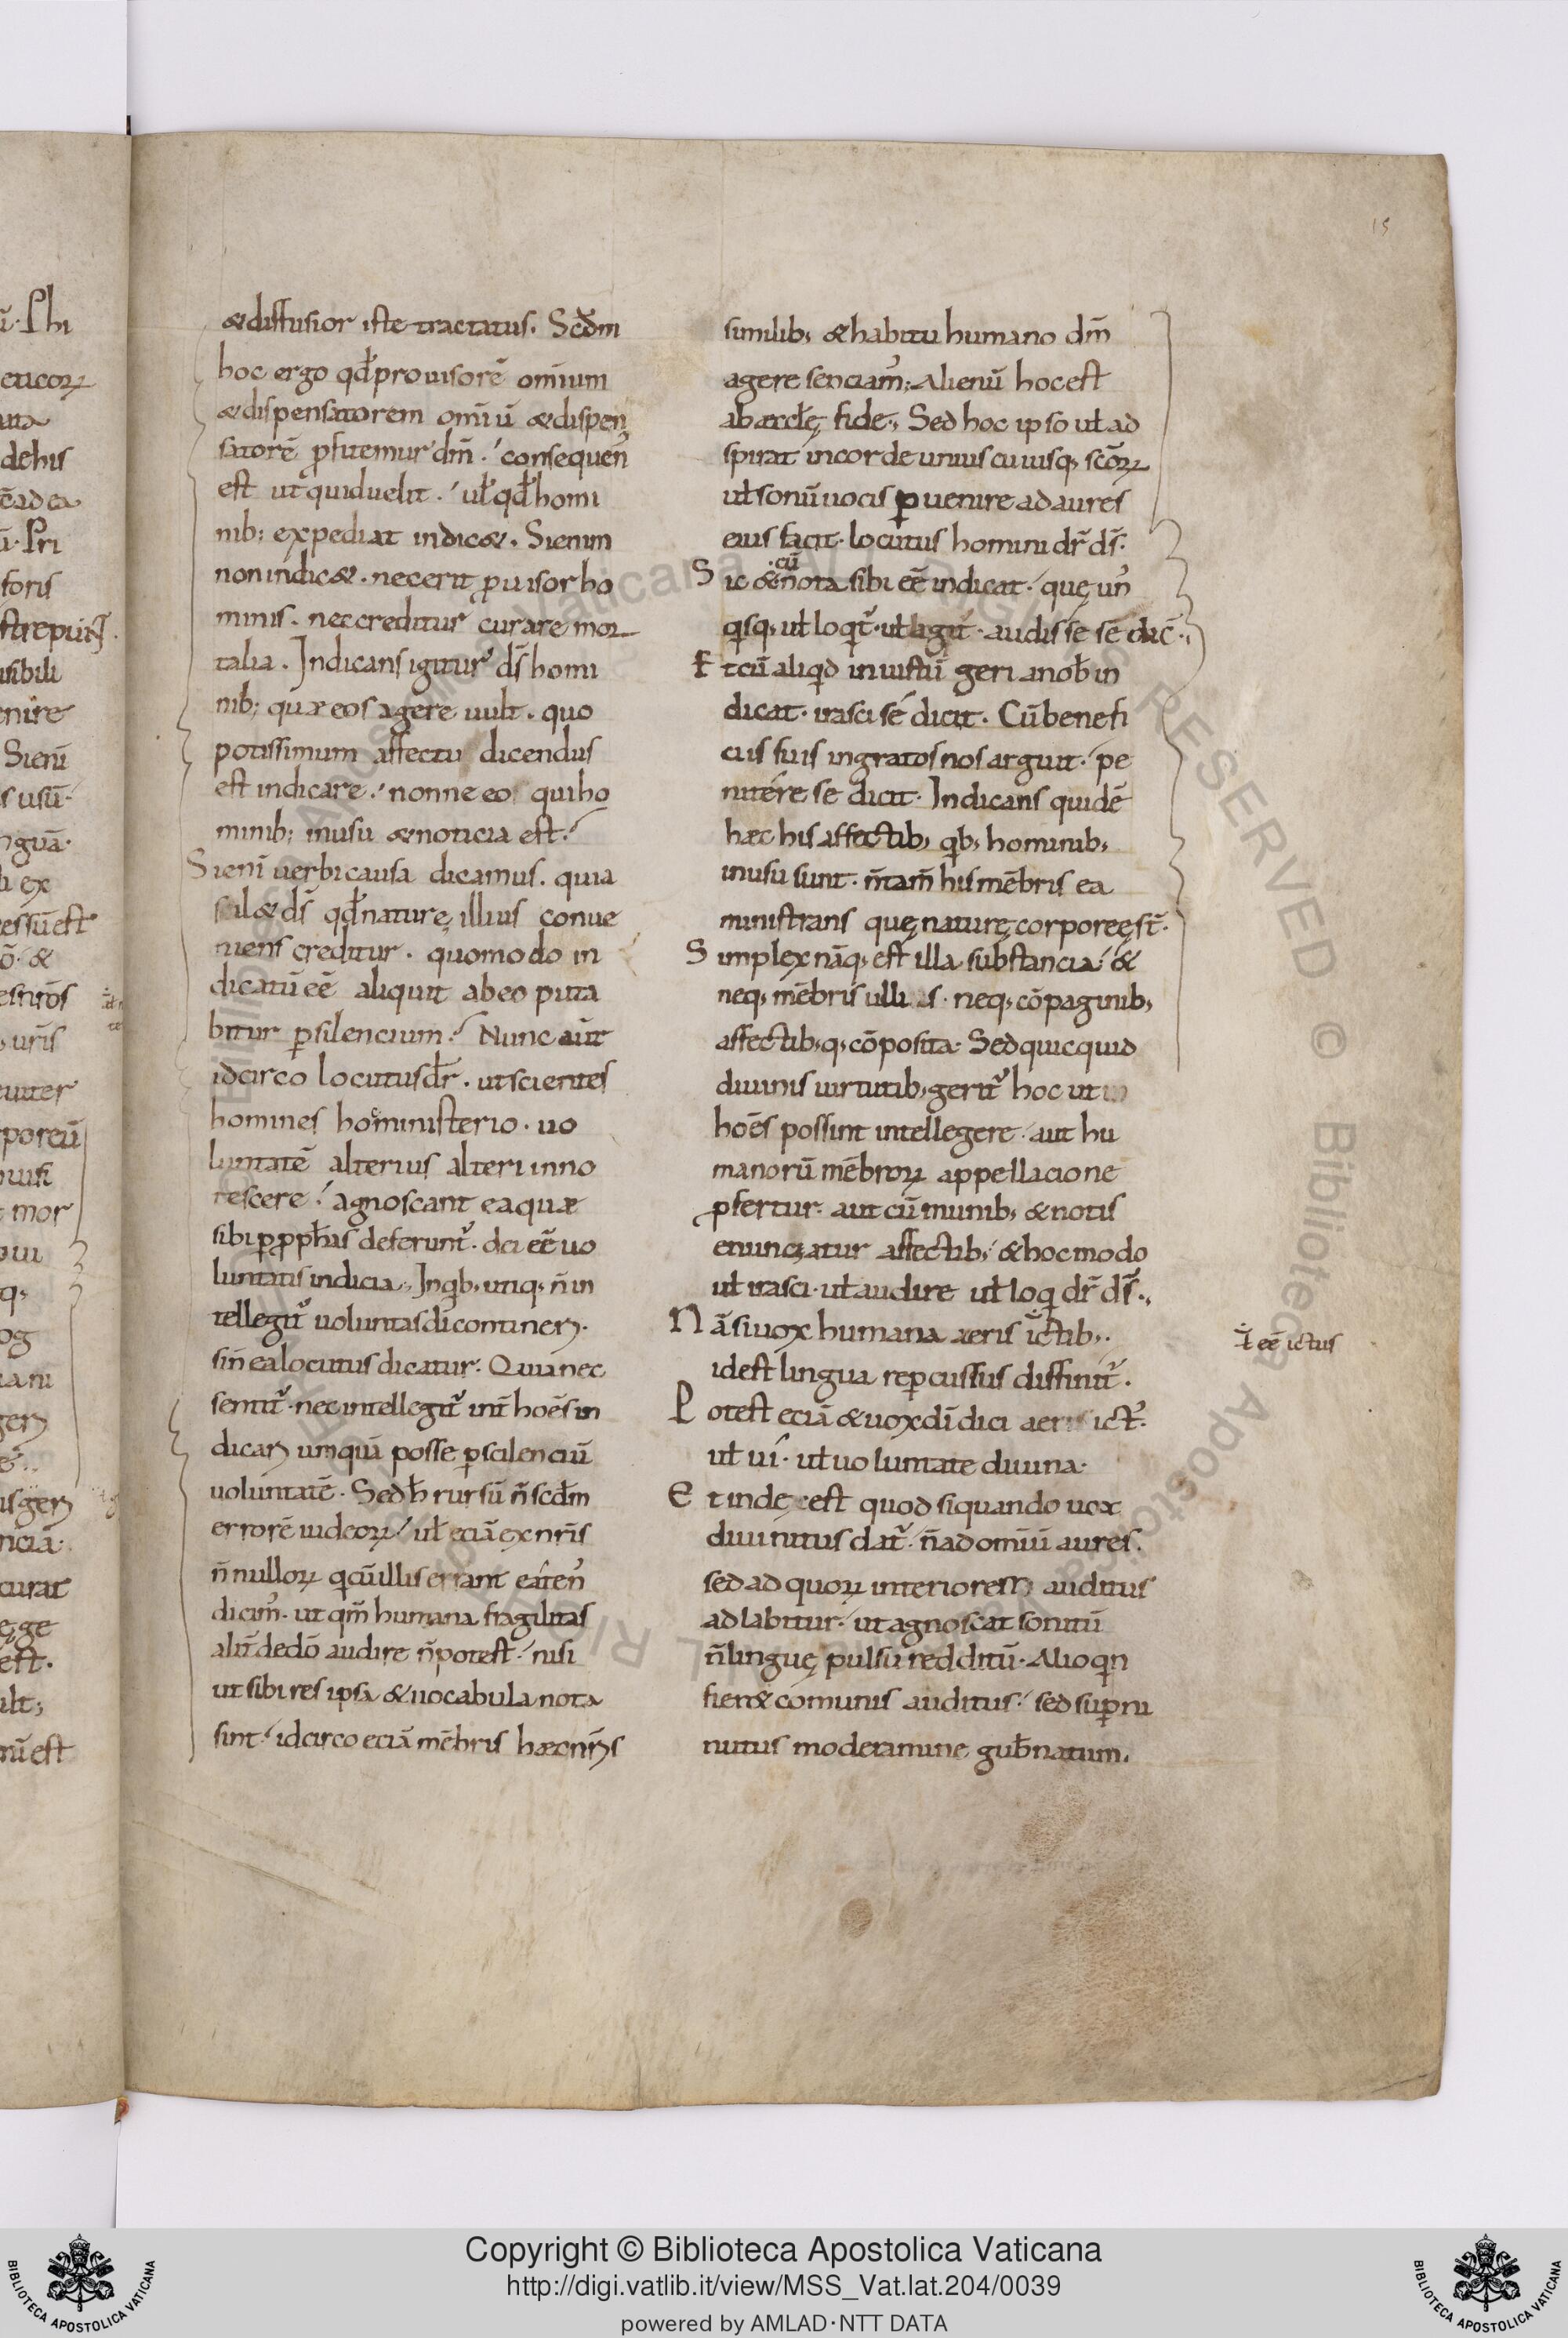 &diffusior iste tractatus. Scd̄m
hoc ergo qđ prouisorē omnium
&dispensatorem omīū &dispen
satorē ꝓfitemur dm̄. consequen̄
est ut quiduelit. uł qđ homi
nib; expediat indic&. Sienim
nonindic&. necerit ꝓuisor ho
minis. nec creditur curare mor
talia. Indicans igitur ds̄ homi
nib; quæ eos agere uult. quo
potissimum affectu dicendus
est indicare. nonne eo quiho
minib; inusu &noticia est.
Sienī uerbicausa dicamus. quia
sil& ds̄ qđ naturę illius conue
niens creditur. quomodo in
dicatū eē aliquit abeo puta
bitur ꝑsilencium. Nunc aūt
idcirco locutus dr̄. ut scientes
homines hoc ministerio. uo
luntatē alterius alteri inno
tescere. agnoscant ea quæ
sibi ꝑ ꝓph̄as deferunt᷑. dei eē uo
luntatis indicia. Inqb; utiq; n̄ in
tellegit᷑ uoluntas di contineri.
sin̄ ea locutus dicatur. Quia nec
sentit᷑. nec intellegit᷑ int̄ hoēs in
dicari umquā posse ꝑ scilenciū
uoluntatē. Sed h̄ rursū n̄ scd̄m
errorē iudeoꝝ. uł eciā ex nr̄is
n̄ nulloꝝ qui cū illis errant eaten᷒
dicim᷒. ut qm̄ humana fragilitas
alit̄ de dō audire n̄ potest. nisi
ut sibi res ipsa &uocabula nota
sint. idcirco eciā mēbris hæc nr̄is
similib; &habitu humano dm̄
agere senciam᷒. Alienū hoc est
ab æccłę fide. Sed hoc ipso uł ad
spirat incorde unius cuiusq; scōꝝ
uł sonū uocis ꝑuenire ad aures
eius facit. locutus homini dr̄ ds̄.
cū
Sic & nota sibi eē indicat. quę un᷒
qisq; uł loqt᷑. uł agit. audisse sē dic̄.
Et cū aliqid iniustū geri a nob̄ in
dicat. irasci sé dicit. Cū benefi
ciis suis ingratos nos arguit. pe
nitére se dicit. Indicans quidē
hæc his affectib; qb; hominib;
inusu sunt. n̄ tam̄ his mēbris ea
ministrans quę naturę corporeę st̄.
Simplex nāq; est illa substancia. &
neq; mēbris ullis. neq; cōpaginib;
affectib;q; cōposita. Sed quicquid
diuinis uirtutib; gerit᷑ hoc ut
hoēs possint intellegere. aut hu
manorū mēbroꝝ appellacione
ꝓfertur. aut cū munib; &notis
enunciatur affectib; &hoc modo
uł irasci. uł audire uł loqi dr̄ ds̄.
Nā si uox humana aeris ictib;.
idest lingua reꝑcussus diffinit᷑.
Potest eciā &uox dī dici aeris ict᷒.
uł ui. uł uoluntate diuina.
Et inde est quod siquando uox
diuinitus dat᷑. n̄ ad omīū aures.
sed ad quoꝝ interiores auditus
adlabitur. ut agnoscat sonitū
n̄ linguę pulsu redditū. Alioqin
fier& comunis auditus. sed suꝑni
nutus moderamine gub̄natum.
ł eē ictus
15
Copyright © Biblioteca Apostolica Vaticana
http://digi.vatlib.it/view/MSS_Vat.lat.204/0039
powered by AMLAD·NTT DATA
BIBLIOTECA APOSTOLICA VATICANA
BIBLIOTECA APOSTOLICA VATICANA